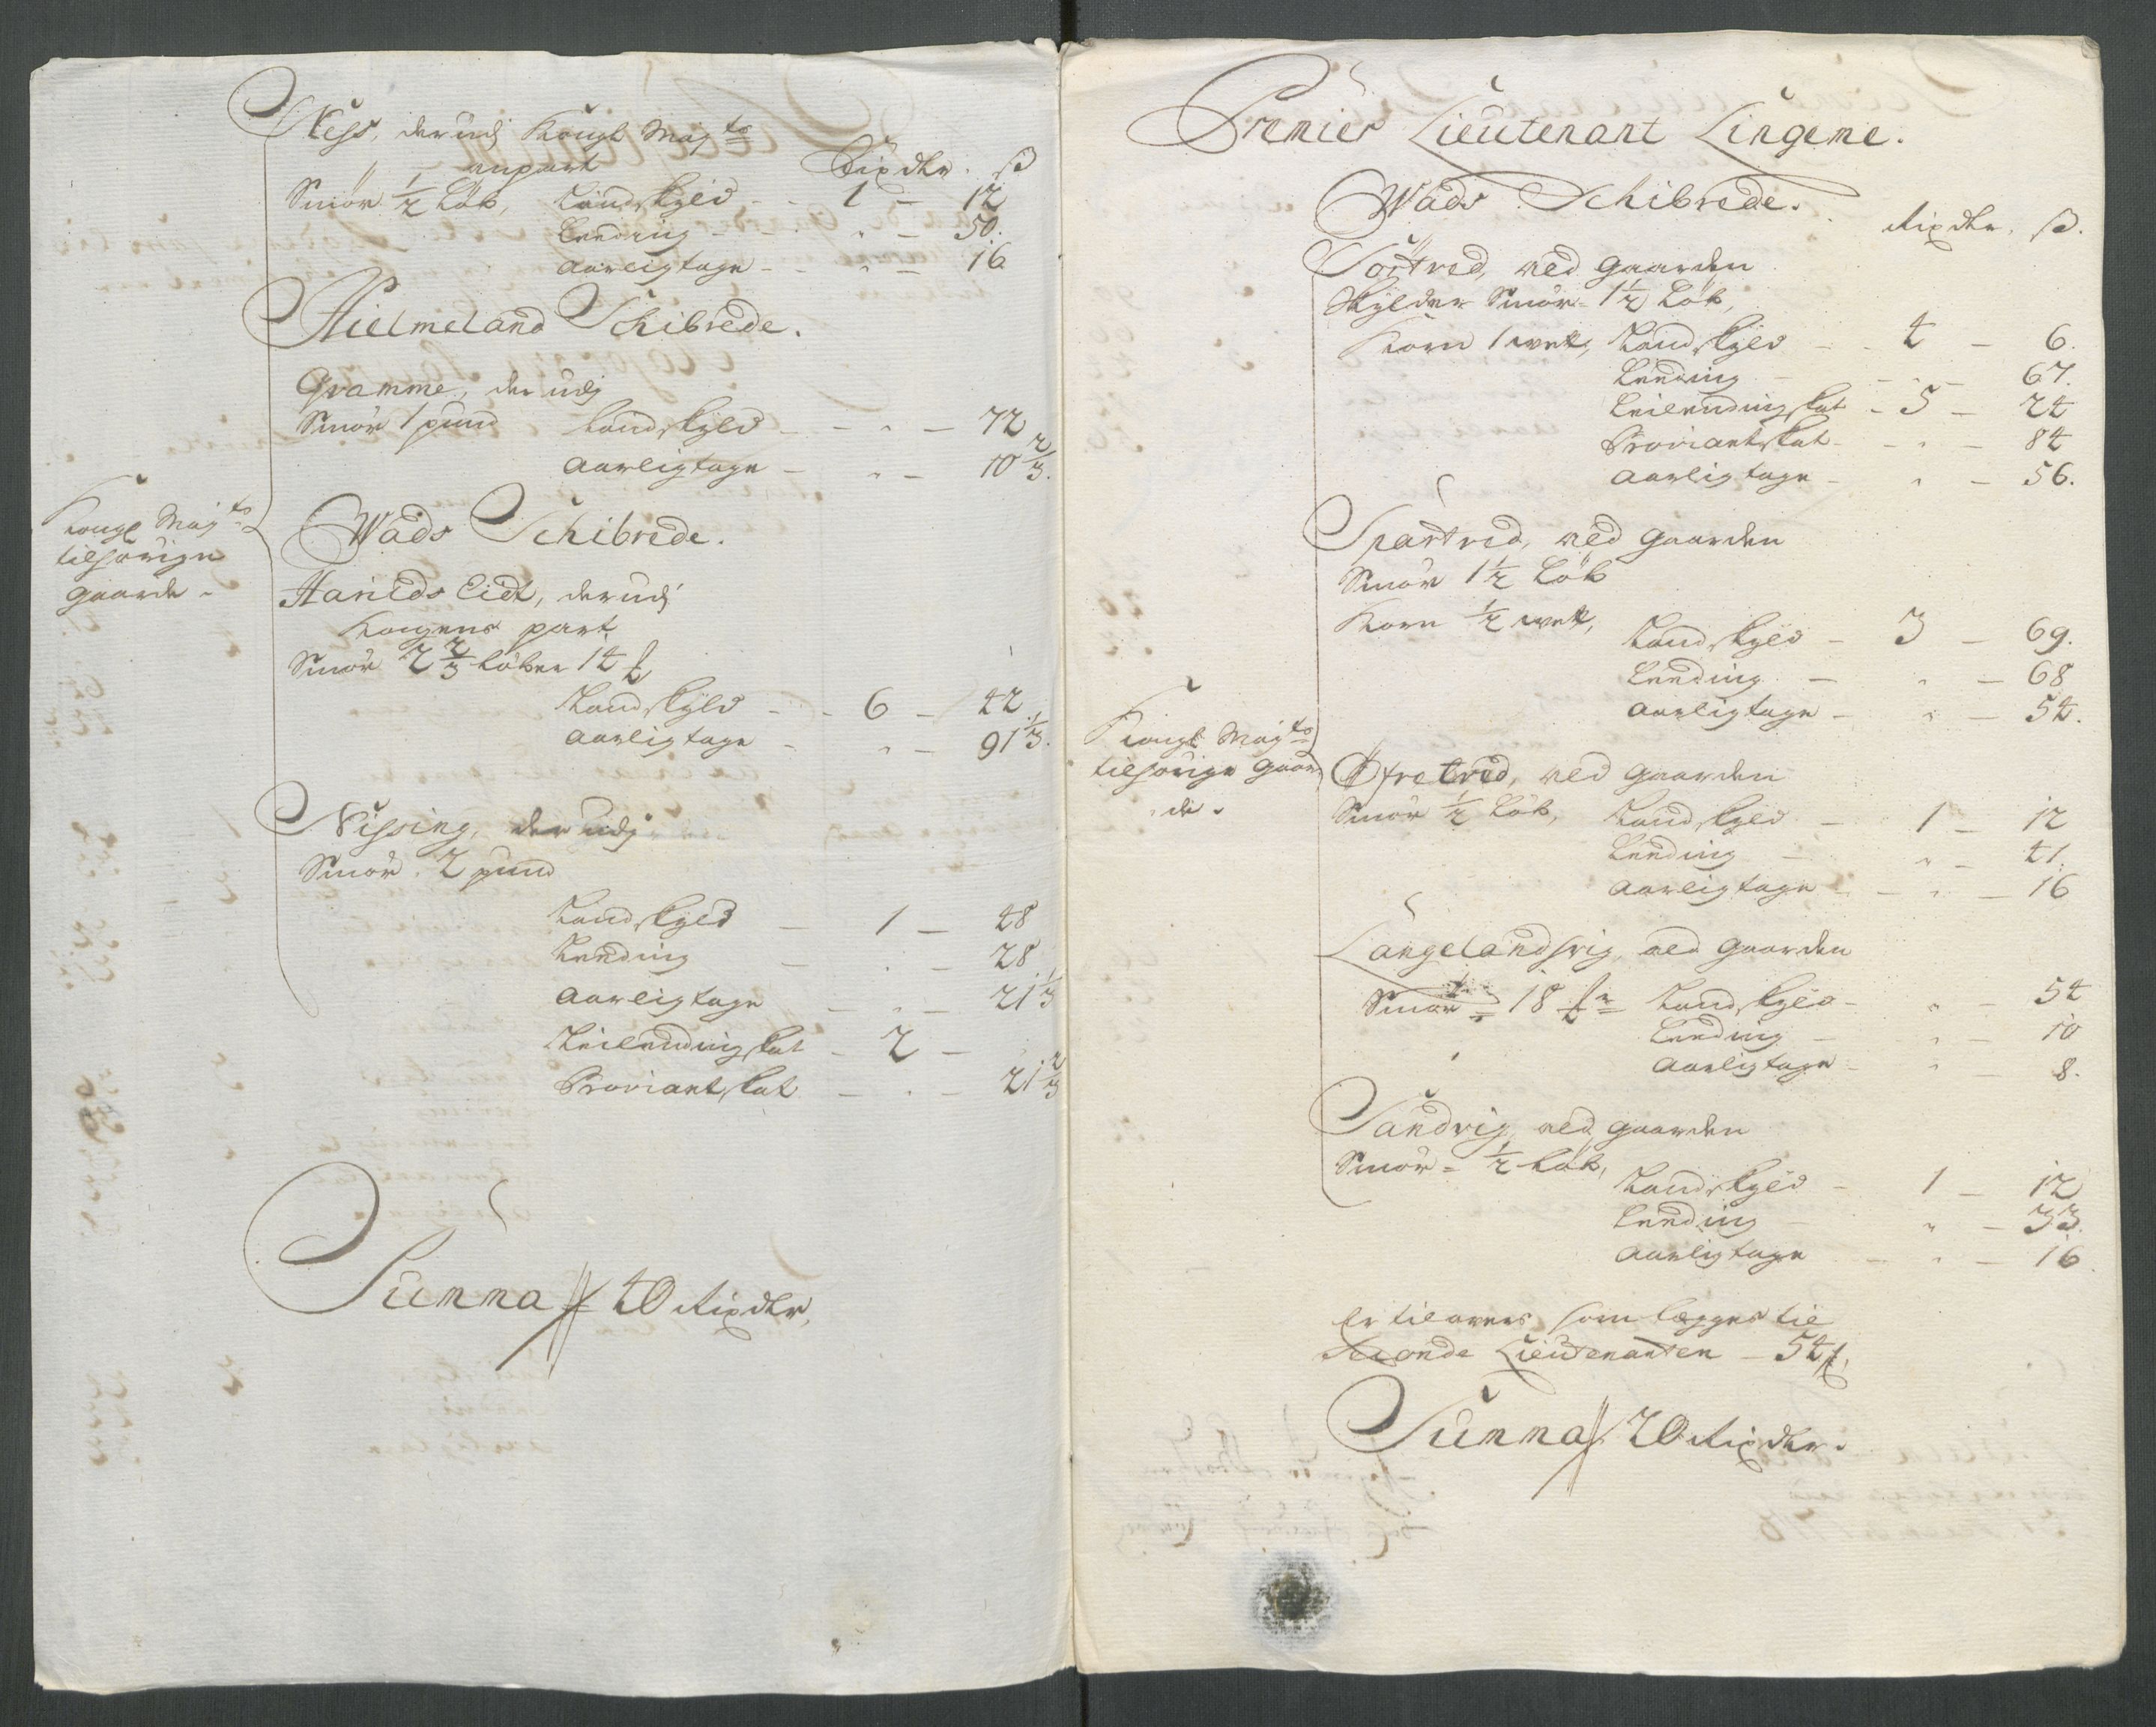 Ness, derudj Kongl Maj^ts
anpart Rixdlr. ß
Smör ½ Löb, Landskyld - 1 - 12
Leeding - " - 50.
Aarligtage - " - 16
Hielmeland Schibrede.
Gramme, der udj
Smör 1 pund Landskyld - " - 72
Aarligtage - " - 10 2/3.
Kongl Maj^ts
tilhörige
gaarde -
Wads Schibrede.
Harilds Eidt, derudj
Kongens part
Smör 2 2/3 Löber 14 ℔
Landskyld - 6 - 42
Aarligtage - " - 91 1/3.
Nissing, der udj
Smör 2 pund
Landskyld - 1 - 48
Leeding - " - 28
Aarligtage - " - 21 1/3
Leilendingskat - 2 -
Proviantskat - " - 21 2/3
Summa 40 Rixdlr.
Premier Lieutenant Lingeme.
Wads Schibrede.
Rixdlr. ß.
Törtved, ved gaarden
Skylder Smör 1½ Löb,
Korn 1 wett, Landskyld - 4 - 6.
Leeding - - 67.
Leilendingskat - 5 - 24
Proviantskat - " - 84
Aarligtage - " - 56.
Spartved, ved gaarden
Smör 1½ Löb
Korn ½ wett,
Landskyld - 3 - 69.
Leeding - " - 68
Aarligtage - " - 54.
Kongl Maj^ts
tilhörige gaar-
de.
Öfretved, ved gaarden
Smör ½ Löb, Landskyld - 1 - 12
Leeding - " - 41.
Aarligtage - " - 16
Langelandsvig, ved gaarden
Smör 18 ℔ Landskyld - " - 54
Leeding - " - 10
Aarligtage - " - 8.
Sandvig, ved gaarden
Smör - ½ Löb,
Landskyld - 1 - 12
Leeding - " - 33.
Aarligtage - " - 16.
Er tilovers som legges til
Seconde Lieutenanten - 54 ß,
Summa 20 Rixdlr.